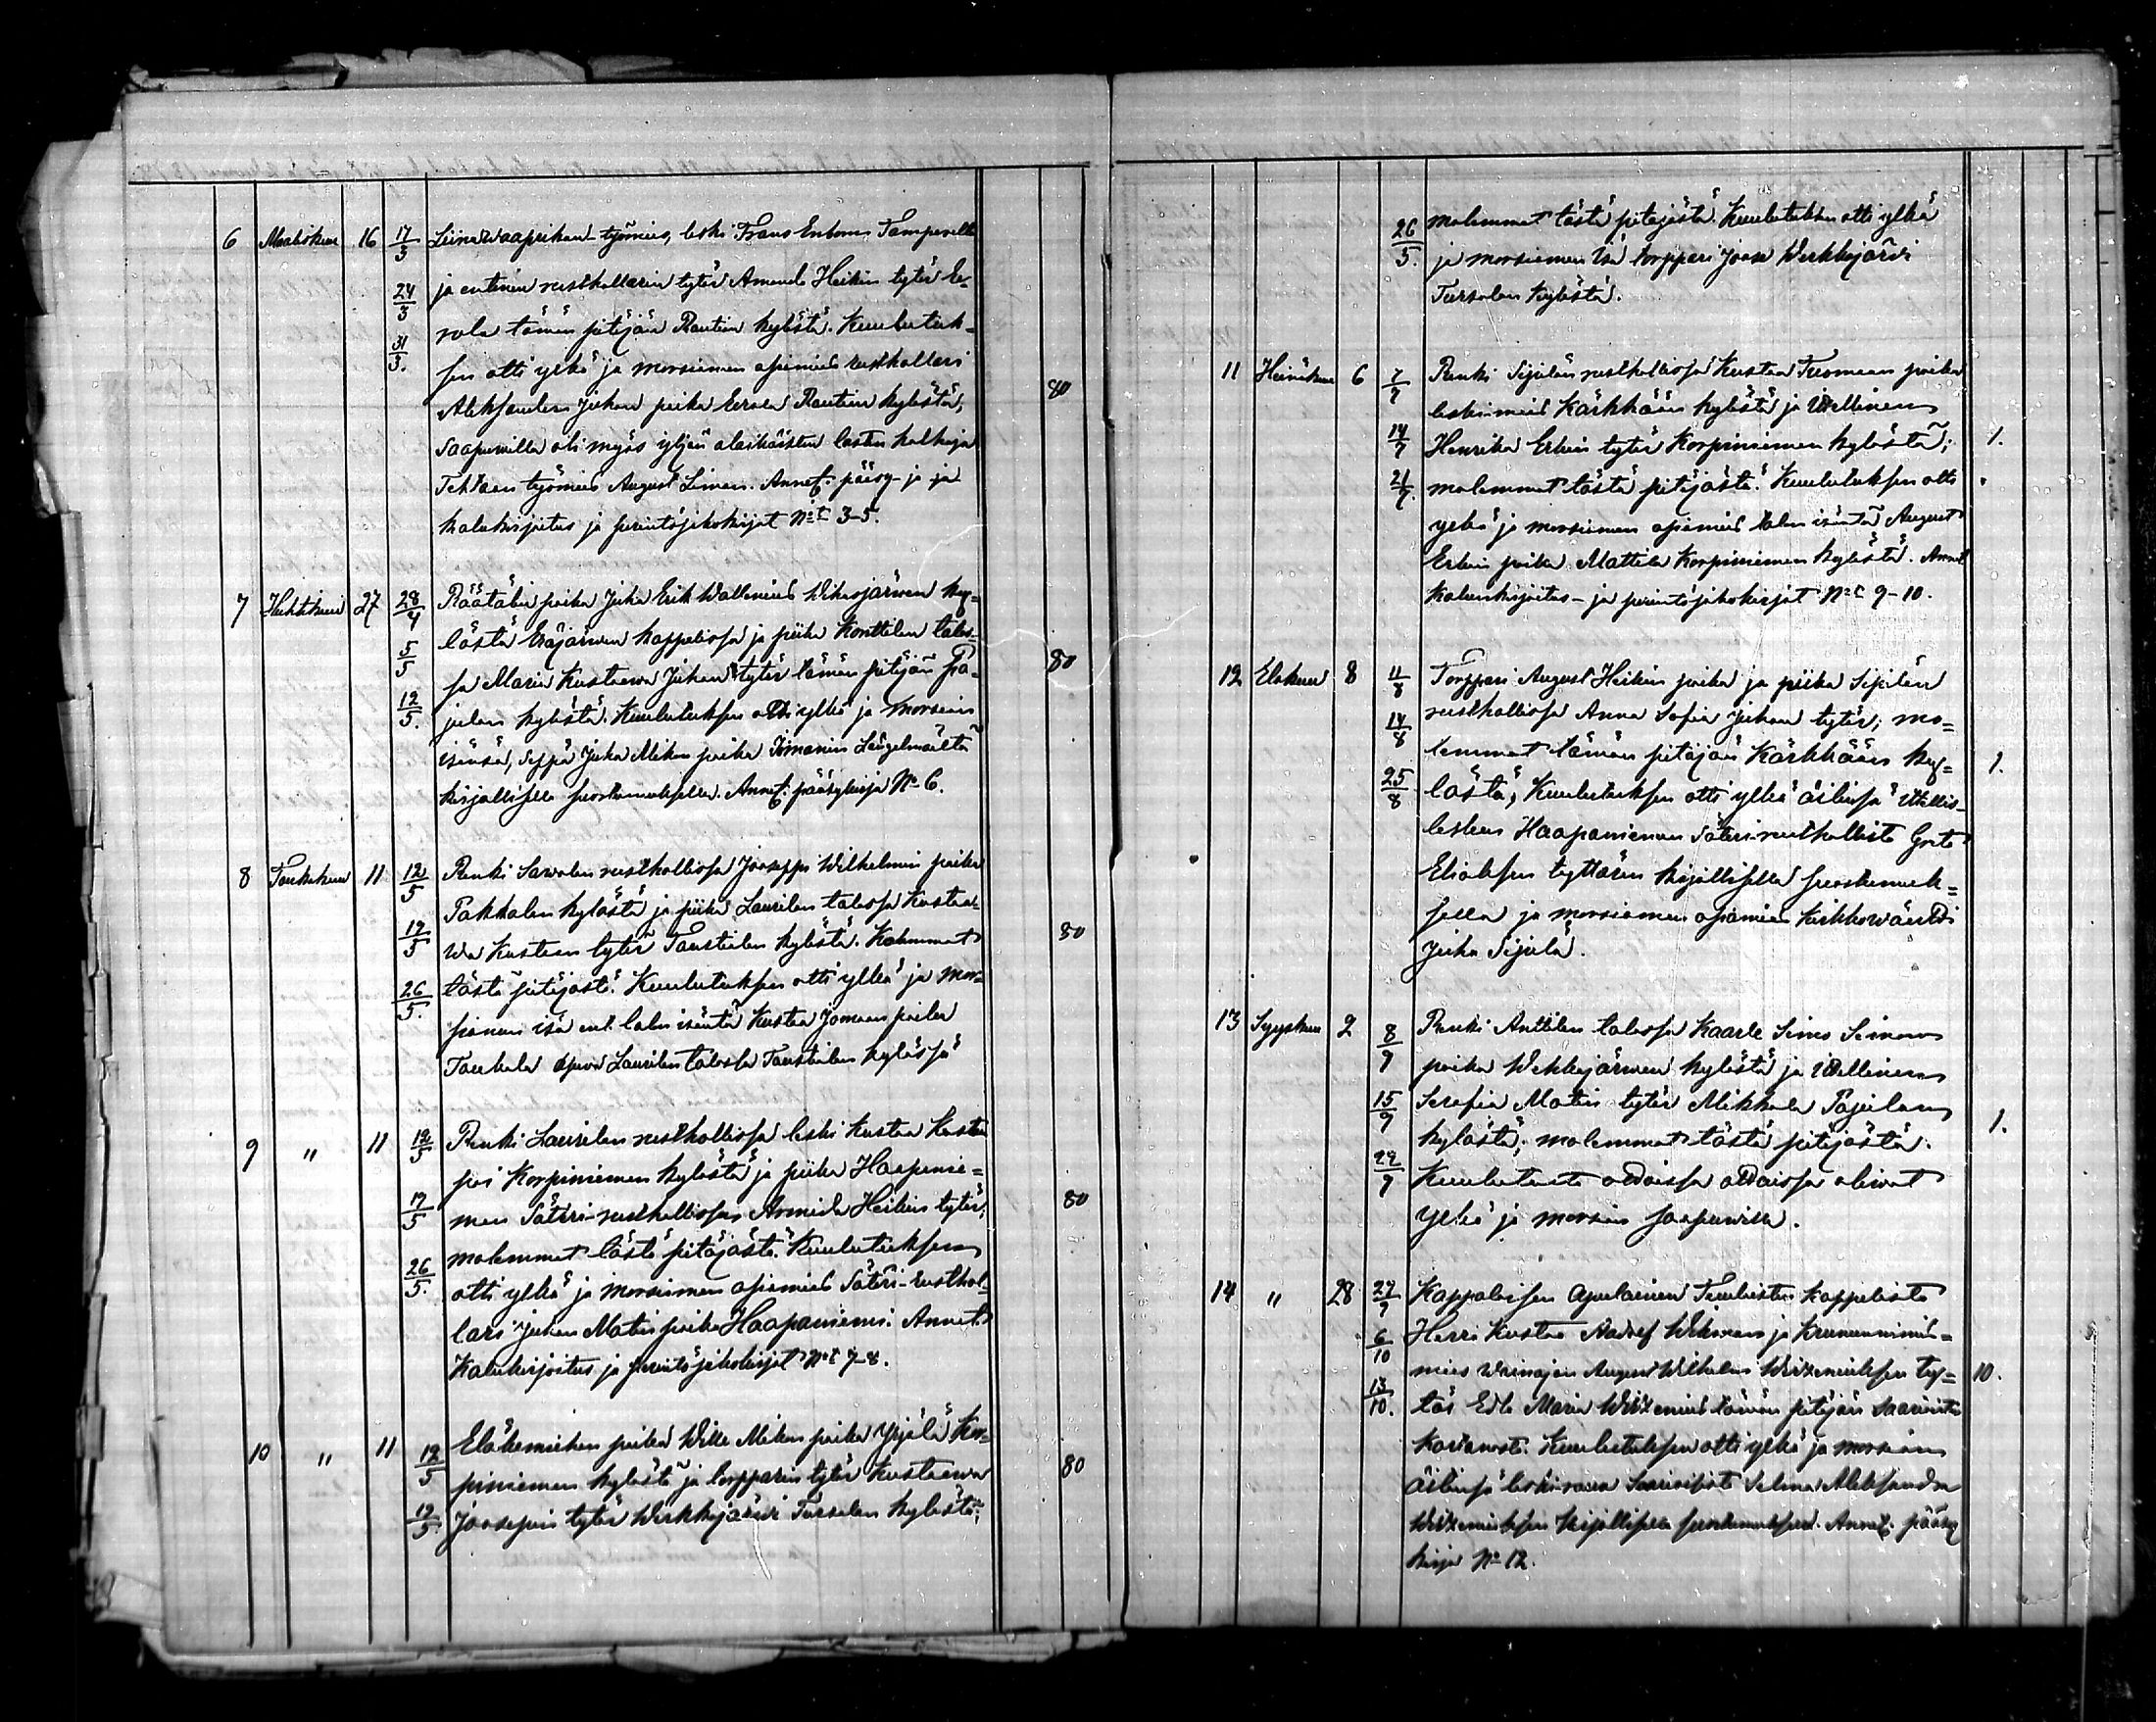 6 Maaliskuu 16 17/3 Liinawaaprikan työmies, leski Frans Enbom Tampereelta
24/3 ja entinen rusthollarin tytär Amanda Heikin tytär Ee-
31/3. rola tämän pitäjän Rautun kylästä. Kuulutuk-
sen otti ylkä ja morsiamen apumies rusthollari 80
Aleksander Juhan poika Eerola Rautun kylästä,
Saapuwilla oli myös yljän alaikäisten lasten holhoja
Tehtaan työmies August Liman. Annet. pääsy- ja ja
kalukirjoitus ja perintöjakokirjat No 3-5.
7 Huhtikuu 27 28/4 Räätälin poika Juha Erik Wallenius Wihasjärwen ky-
5/5 lästä Eräjärwen kappelissa ja piika Konttilan talos- 80
12/5. sa Maria Kustaawa Juhan tytär tämän pitäjän Pa-
julan kylästä. Kuulutuksen otti ylkä ja morsian
isänsä, Seppä Juha Mikon poika Längelmäeltä
kirjallisella suostumuksella. Annet. pääsykirja No 6.
8 Toukokuu 11 12/5 Renki Sarwolan rusthollissa Jooseppi Wilhelmin poika
Pakkalan kylästä ja piika Laurilan talossa Kustaa-
19/5 wa Kustaan tytär Taustialan kylästä. Kummat 80
26/5. tästä pitäjästä. Kuulutuksen otti ylkä ja mor-
siamen isä ent. talon isäntä Kustaa Jomaan poika
Toukola asuwa Laurilan talossa Taustialan kylässä
9 " 11 12/5 Renki Laurilan rusthollissa leski Kustaa Kustaan
poi Korpiniemen kylästä ja piika Haapanie-
19/5 men Säteri-rusthollissa Armida Heikin tytär; 80
molemmat tästä pitäjästä. Kuulutuksen
26/5. otti ylkä ja morsiamen apumies Säteri-rusthol-
lari Juhan Matin poika Haapaniemi. Annet.
Kalukirjoitus ja perintöjakokirjat No 7-8.
10 " 11 12/5 Eläkemiehen poika Wille Mikon poika Yrjälä Kor- 80
piniemen kylästä ja torpparin tytär Kustaawa
19/5 Joosepin tytär Werkkojärwi Tursolan kylästä;
26/5. molemmat tästä pitäjästä. Kuulutuksen otti ylkä
ja morsiamen isä torppari Joose Werkkojärwi
Tursolan kylästä.
11 Heinäkuu 6 7/7 Renki Sipilän rusthollissa Kustaa Tuomaan poika
leskimies Kärkkään kylästä ja itsellinen
14/7 Henrika Erkin tytär Korpiniemen kylästä; 1.
21/7. molemmat tästä pitäjästä. Kuulutuksen otti
ylkä ja morsiamen apumies talon isäntä August
Erkin poika Mattila Korpiniemen kylästä. Annet
Kalunkirjoitus- ja perintöjakokirjat No 9-10.
12 Elokuu 8 11/8 Torppari August Heikin poika ja piika Sipilän
14/8 rusthollissa Anna Sofia Juhan tytär; mo-
lemmat tämän pitäjän Kärkkään ky- 1.
25/8 lästä; Kuulutuksen otti ylkä äitinsä itsellis-
lesken Haapaniemen Säteri-rusthollista Greta
Eliaksen tyttären kirjallisella suostumuk-
sella ja morsiamen apumies kirkkowäärti
Juha Sipilä.
13 Syyskuu 2 8/9 Renki Anttilan talossa Kaarle Simo Simon
poika Wehkajärwen kylästä ja itsellinen
15/9 Serafia Matin tytär Mikkola Pajulan 1.
kylästä; molemmat tästä pitäjästä.
22/9 Kuulutusta ottaissa oliwat
ylkä ja morsian saapuwilla.
14 " 28 29/9 Kappalaisen Apulainen Teuliston kappelista
6/10 Herra Kustaa Aadolf Wikman ja Kruununnimis-
mies wainajan August Wilhelm Wirzeniuksen ty- 10.
13/10. tär Edla Maria Wirzenius tämän pitäjän Saarioisten
kartanosta. Kuulutuksen otti ylkä ja morsian
äitinsä leski-rouwa Selma Aleksandra
Wirzeniuksen kirjallisella suostumuksella. Annet. pääsy
kirja No 12.